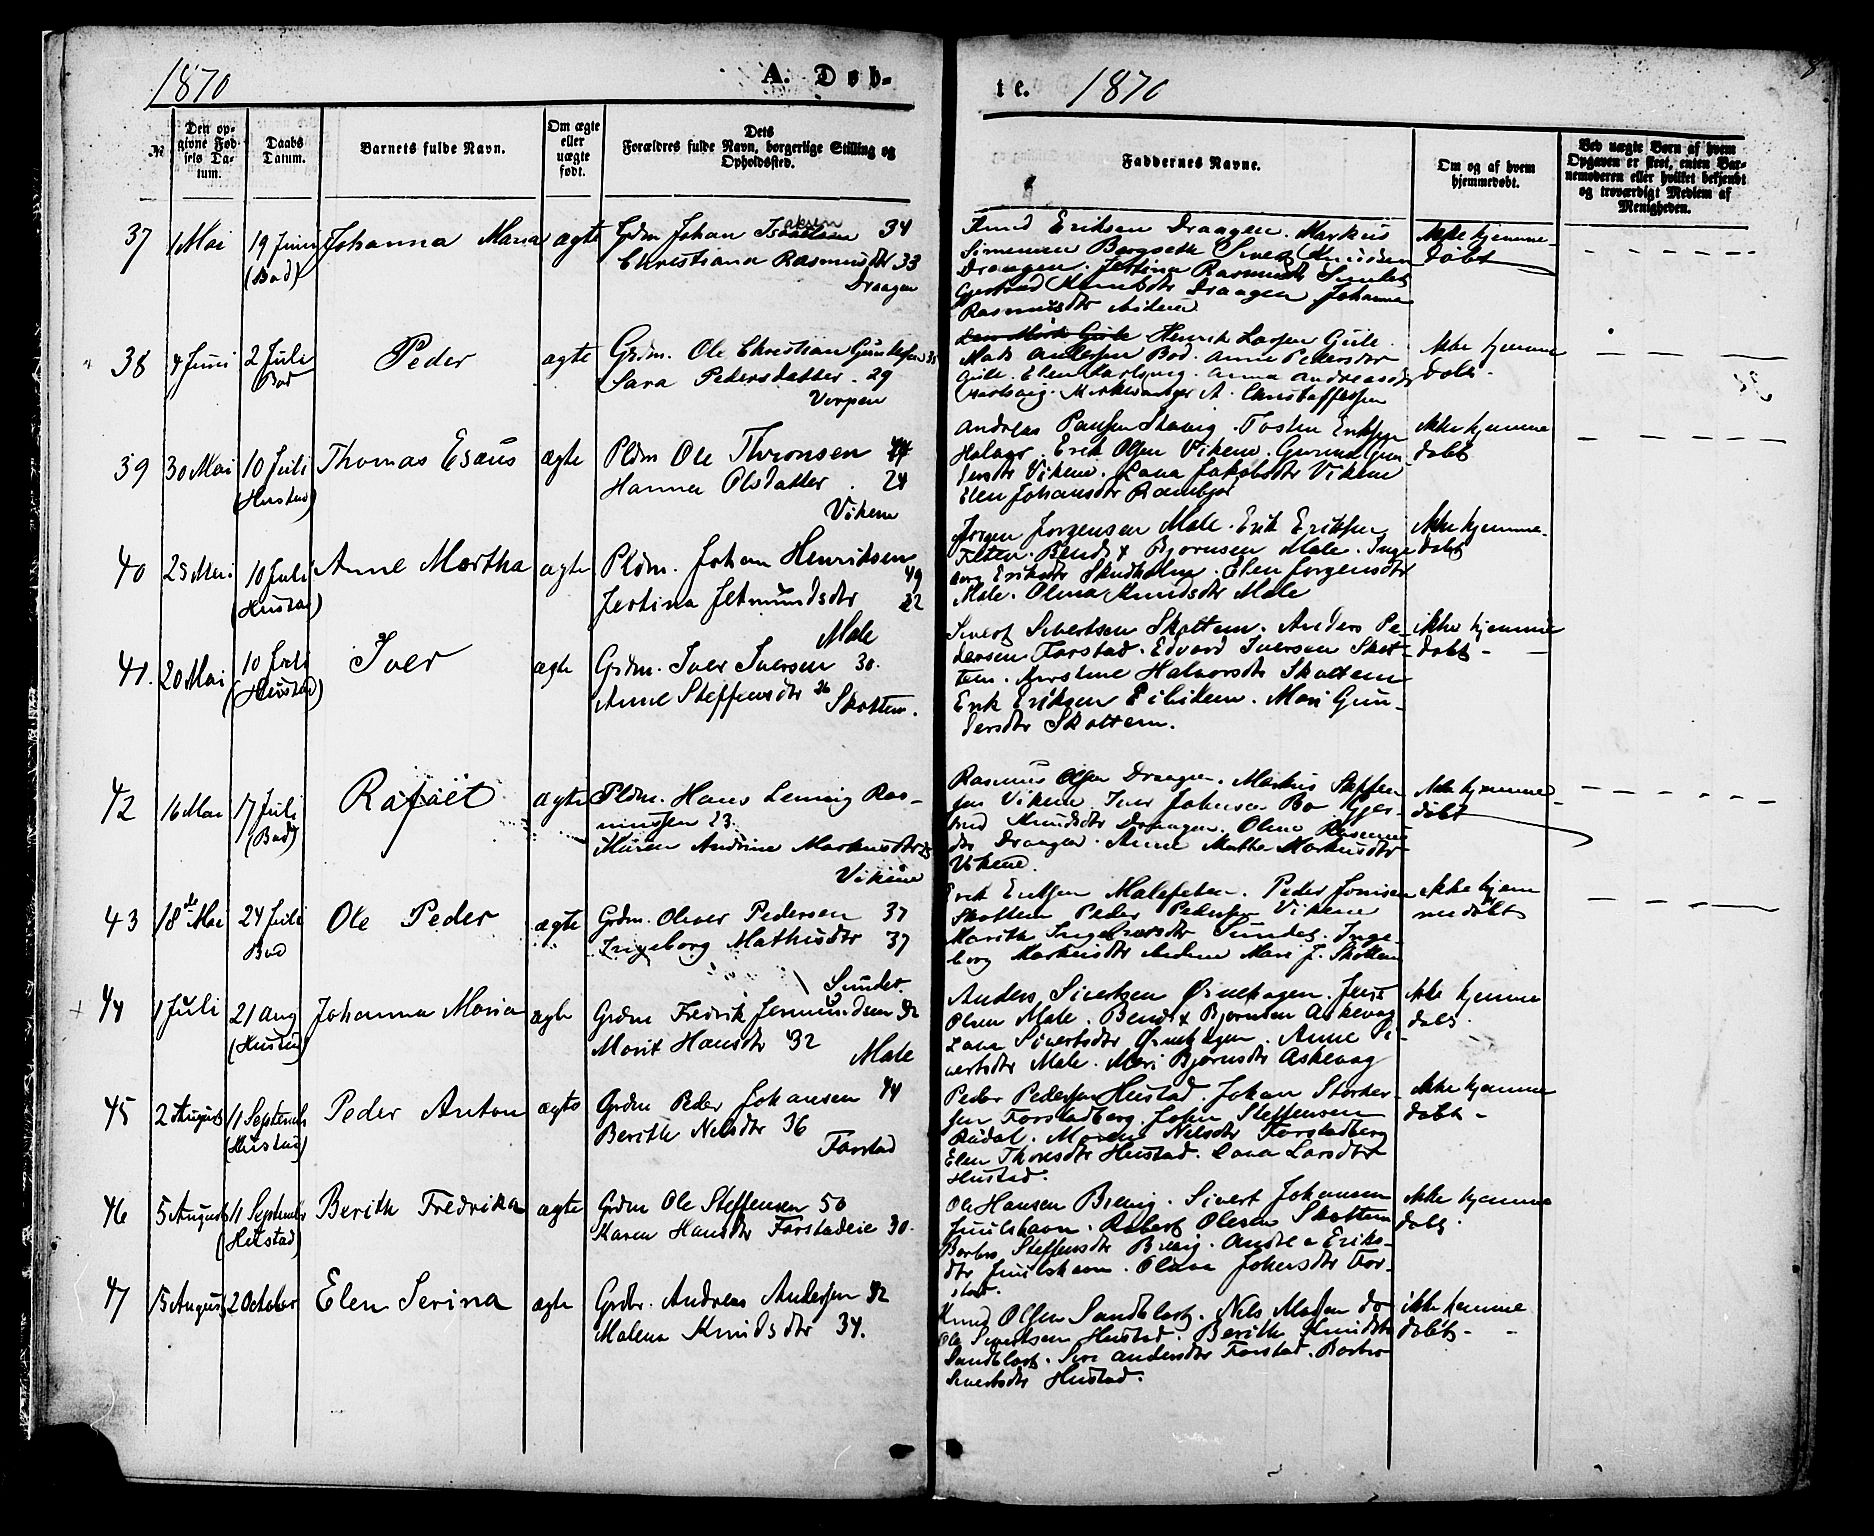 1870
A. Døb-
te.
1870
8
№
Den op-
givne Fød-
sels Da-
tum.
Daabs
Datum.
Barnets fulde Navn.
Om ægte
eller
uægte
født.
Dets
Forældres fulde Navn, borgerlige Stilling og
Opholdssted.
Faddernes Navne.
Om og af hvem
hjemmedøbt.
Ved uægte Børn af hvem
Opgaven er skeet, enten Bar-
nemoderen eller hvilket bekjendt
og troværdigt Medlem af
Menigheden.
37
1 Mai
19 Juni
(Bod)
Johanna Maria
ægte
Grdm Johan 34
Christiana Rasmusdtr 33
Draagen
Knud Eriksen Draagen. Markus
Simensen Bergseth Sivert Knudsen
Draagen. Jertina Rasmusdtr
Gjertrud Knudsdtr Draagen Johanna
Rasmusdtr
Ikke hjemme-
døbt
38
4 Juni
2 Juli
Bod
Peder
ægte
Grdm. Ole Christian
Sara Pedersdatter. 29
Vorpen
Henrik Larsen Gule.
Mads Andersen Bod. Anne Pedersdtr
Gule. Elen
Ikke hjemme
døbt.
39
30 Mai
10 Juli
(Hustad)
Thomas Esaus
ægte
Pldm Ole Thronsen 44
Hanna Olsdatter. 24
Vikene
Andreas Paulsen Stavig. Tosten Eriksen
Halaas. Erik Olsen Vikene. Gunna Gun-
dersdtr Vikene. Lava Jakobsdtr Vikene
Elen Johansdtr
Ikke hjemme
døbt
40
25 Mai
10 Juli
(Hustad)
Anne Martha
ægte
Pldm. Johan Henriksen
49
Jertina Jetmundsdtr 22
Male
Jørgen Jørgensen Male. Erik Eriksen
Bendt Bjørnsen Male. Inge-
borg Eriksdtr Skudholm. Elen Jørgensdtr
Male. Olena Knudsdtr Male
Ikke hjemme-
døbt
41.
20 Mai
10 Juli
(Hustad)
Iver
ægte
Grdm. Iver Iversen 30.
Anne Steffensdtr 26
Skottem.
Sivert Sivertsen Skottem. Anders Pe-
dersen Farstad. Edvard Iversen Skot-
tem. Anstine Halvorsdtr Skottem
Erik Eriksen. Mari Gun-
dersdtr Skottem.
ikke hjemme
døbt -
42
16 Mai
17 Juli
(Bod)
Rafael
ægte
Pldm. Hans Ras-
mussen 23
Karen Andrine Markusdtr
Vikene
Rasmus Olsen Draagen. Markus Steffen-
sen Vikene. Iver Johnsen Bo Gjer-
trud Knudsdtr Draagen. Olena Rasmus-
dtr Draagen. Anne Marthe Markusdtr
Vikene.
Ikke hjemme-
døbt
43
18de Mai
24 Juli
Bod
Ole Peder
ægte
Grdm. Oliver Pedersen 37
Ingeborg Mathisdtr 37
Sundet.
Erik Eriksen. Peder Jonsen
Skottem Peder Pedersen Vikene
Marith Sundet. Inge-
borg Markusdtr Mari J. Skottem
ikke hjem
medøbt
44
1 Juli
21 Aug
(Hustad)
Johanna Maria
ægte
Grdm Fredrik Jermundsen 32
Marit Hansdtr 32
Male
Anders Sivertsen Ørnehagen. Jens
Olsen Male. Bendt Bjørnsen Askevag
Lava Sivertsdtr Ørnehagen. Anne Si-
vertsdtr Male. Mari Bjørnsdtr Askevag
Ikke hjemme
døbt.
45
2 August
11 September
(Hustad)
Peder Anton
ægte
Grdm Peder Johansen 44
Berith Nelsdtr 36
Farstad
Peder Pedersen Hustad. Johan Storker-
sen Farstadberg. John Steffensen
Rudal. Morene Nelsdtr Farstadberg
Elen Thoresdtr Hustad. Lava Larsdtr
Hustad.
Ikke hjemme
døbt -
46
5 August
11 September
(Hustad)
Berith Fredrika
ægte
Grdm Ole Steffensen 50
Karen Hansdtr Farstadeie 30.
Ole Hansen Breivig. Sivert Johansen
Juulshavn. Robert Olesen Skottem
Barbro Steffensdtr Breivig. Andrea Eriks-
dtr Juulshavn. Olava Johansdtr Far-
stad.
Ikke hjemme
døbt.
47
15 August
2 October
Elen Serina
ægte
Grdbr. Andreas Andersen 32
Malena Knudsdtr 34.
Knud Olsen Sandblast. Nels Madsen do
Ole Sivertsen Hustad. Berith Knudsdtr
Sandblast. Siri Andersdtr Farstad. Barbro
Sivertsdtr Hustad.
ikke hjemme
døbt -